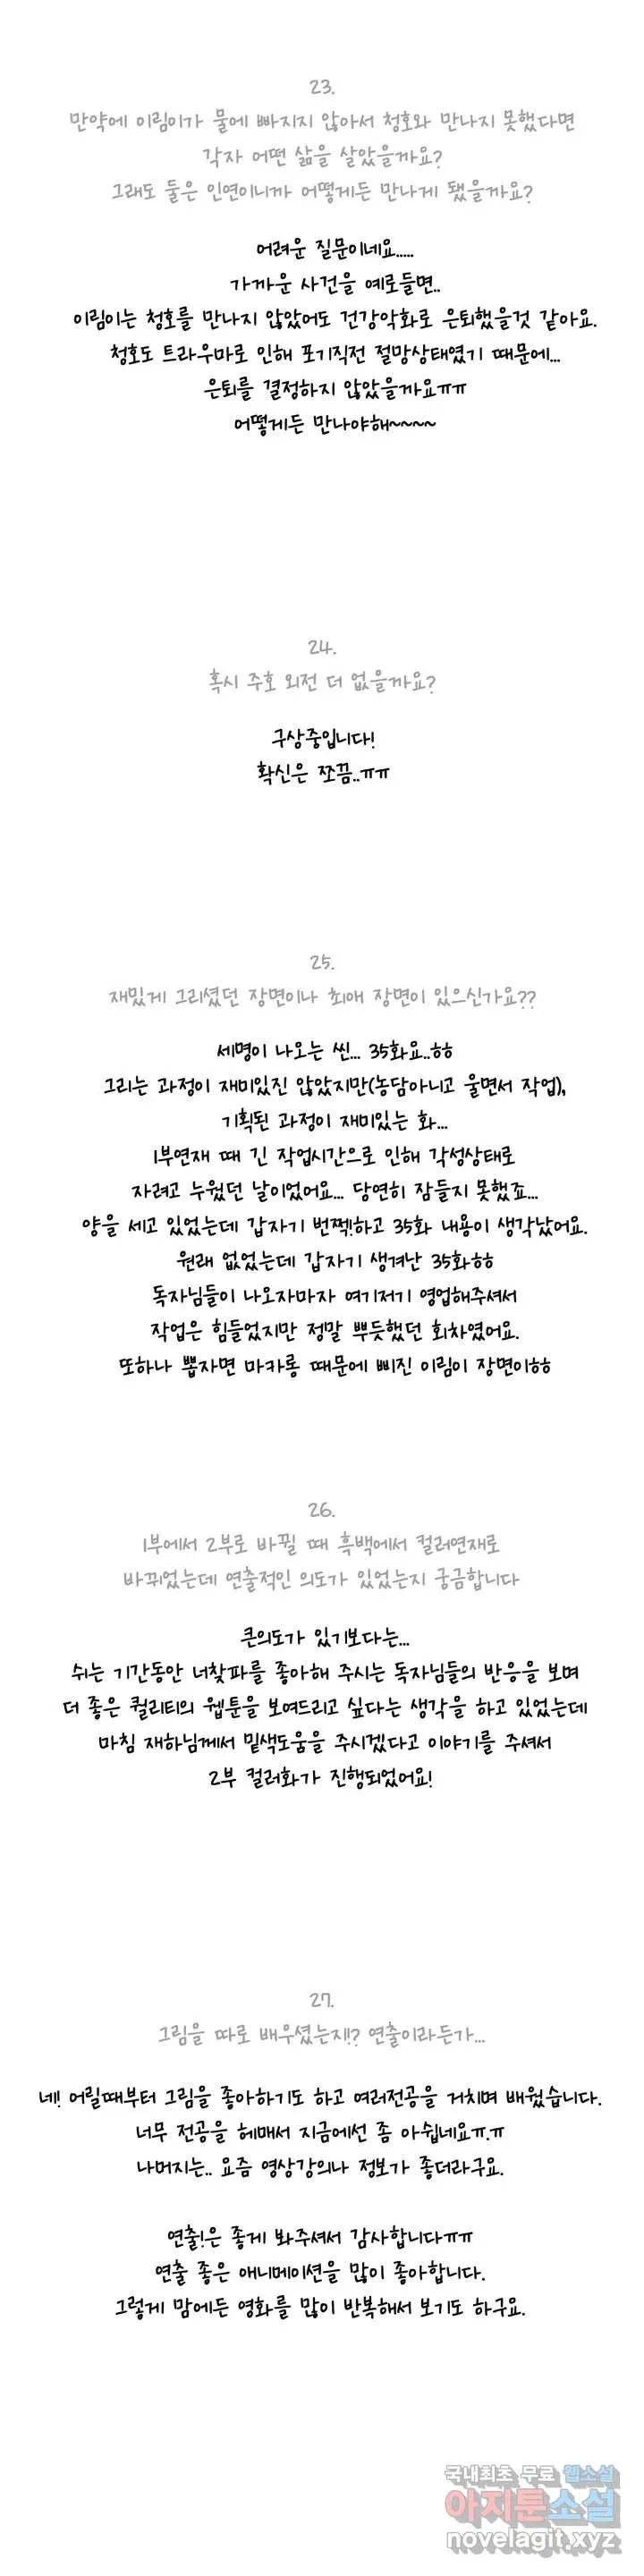 23.
만약에 이림이가 물에 빠지지 않아서 청호와 만나지 못했다면
각자 어떤 삶을 살았을까요?
그래도 둘은 인연이니까 어떻게든 만나게 됐을까요?
어려운 질문이네요.....
가까운 사건을 예로들면..
이림이는 청호를 만나지 않았어도 건강악화로 은퇴했을것 같아요.
청호도 트라우마로 인해 포기직전 절망상태였기 때문에...
은퇴를 결정하지 않았을까요ㅠㅠ
어떻게든 만나야해~~~~
24.
혹시 주호 외전 더 없을까요?
구상중입니다!
확신은 쪼끔..ㅠㅠ
25.
재밌게 그리셨던 장면이나 최애 장면이 있으신가요??
세명이 나오는 씬... 35화요..ㅎㅎ
그리는 과정이 재미있진 않았지만(농담아니고 울면서 작업),
기획된 과정이 재미있는 화...
1부연재 때 긴 작업시간으로 인해 각성상태로
자려고 누웠던 날이었어요... 당연히 잠들지 못했죠...
양을 세고 있었는데 갑자기 번쩍!하고 35화 내용이 생각났어요.
원래 없었는데 갑자기 생겨난 35화ㅎㅎ
독자님들이 나오자마자 여기저기 영업해주셔서
작업은 힘들었지만 정말 뿌듯했던 회차였어요.
또하나 뽑자면 마카롱 때문에 삐진 이림이 장면이ㅎㅎ
26.
1부에서 2부로 바뀔 때 흑백에서 컬러연재로
바뀌었는데 연출적인 의도가 있었는지 궁금합니다
큰의도가 있기보다는...
쉬는 기간동안 너찾파를 좋아해 주시는 독자님들의 반응을 보며
더 좋은 퀄리티의 웹툰을 보여드리고 싶다는 생각을 하고 있었는데
마침 재하님께서 밑색도움을 주시겠다고 이야기를 주셔서
2부 컬러화가 진행되었어요!
27.
그림을 따로 배우셨는지!? 연출이라든가...
네! 어릴때부터 그림을 좋아하기도 하고 여러전공을 거치며 배웠습니다.
너무 전공을 헤매서 지금에선 좀 아쉽네요ㅠ.ㅠ
나머지는.. 요즘 영상강의나 정보가 좋더라구요.
연출!은 좋게 봐주셔서 감사합니다ㅠㅠ
연출 좋은 애니메이션을 많이 좋아합니다.
그렇게 맘에든 영화를 많이 반복해서 보기도 하구요.
국내최초 무료 웹소설
아지툰소설
novelagit.xyz